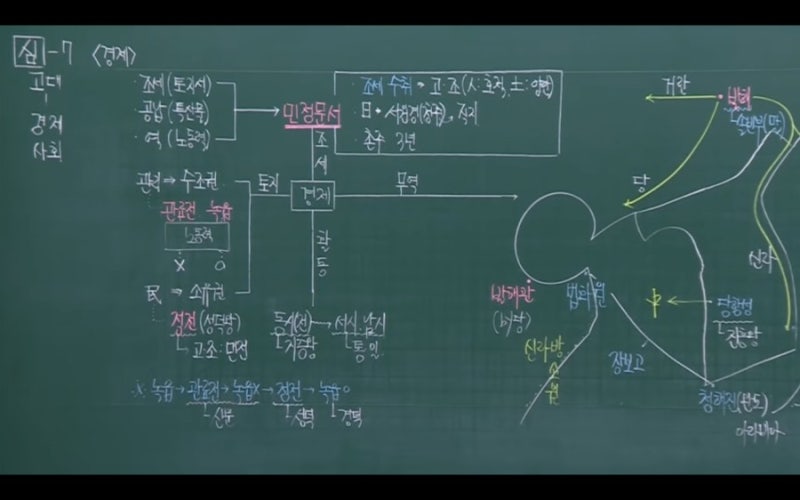 심-7 <경제>
고대
경제
사회
· 조세 (토지세)
· 공납 (특산물)
· 역 (노동력)
민정문서
· 조세 수취 → 고·조(人:호적, 土:양안)
· 日 서원경(청주),
· 촌주 3년
조세
경제
토지
무역
활동
관리 → 수조권
관료전 녹읍
노동력
X O
民 → 소유권
정전 (성덕왕)
고·조: 민전
동시(전) → 서시, 남시
지증왕
통일
※ 녹읍 → 관료전 → 녹읍X → 정전 → 녹읍O
신문
성덕
경덕
거란
발해
솔빈부(말)
당
신라
발해관
(bc당)
법화원
신라방
신라방
中
당항성
진흥왕
장보고
청해진(완도)
아라비아